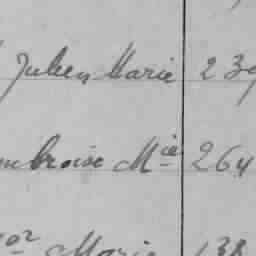 Julien Marie 239
mbroise Mie 264
or Marie 138